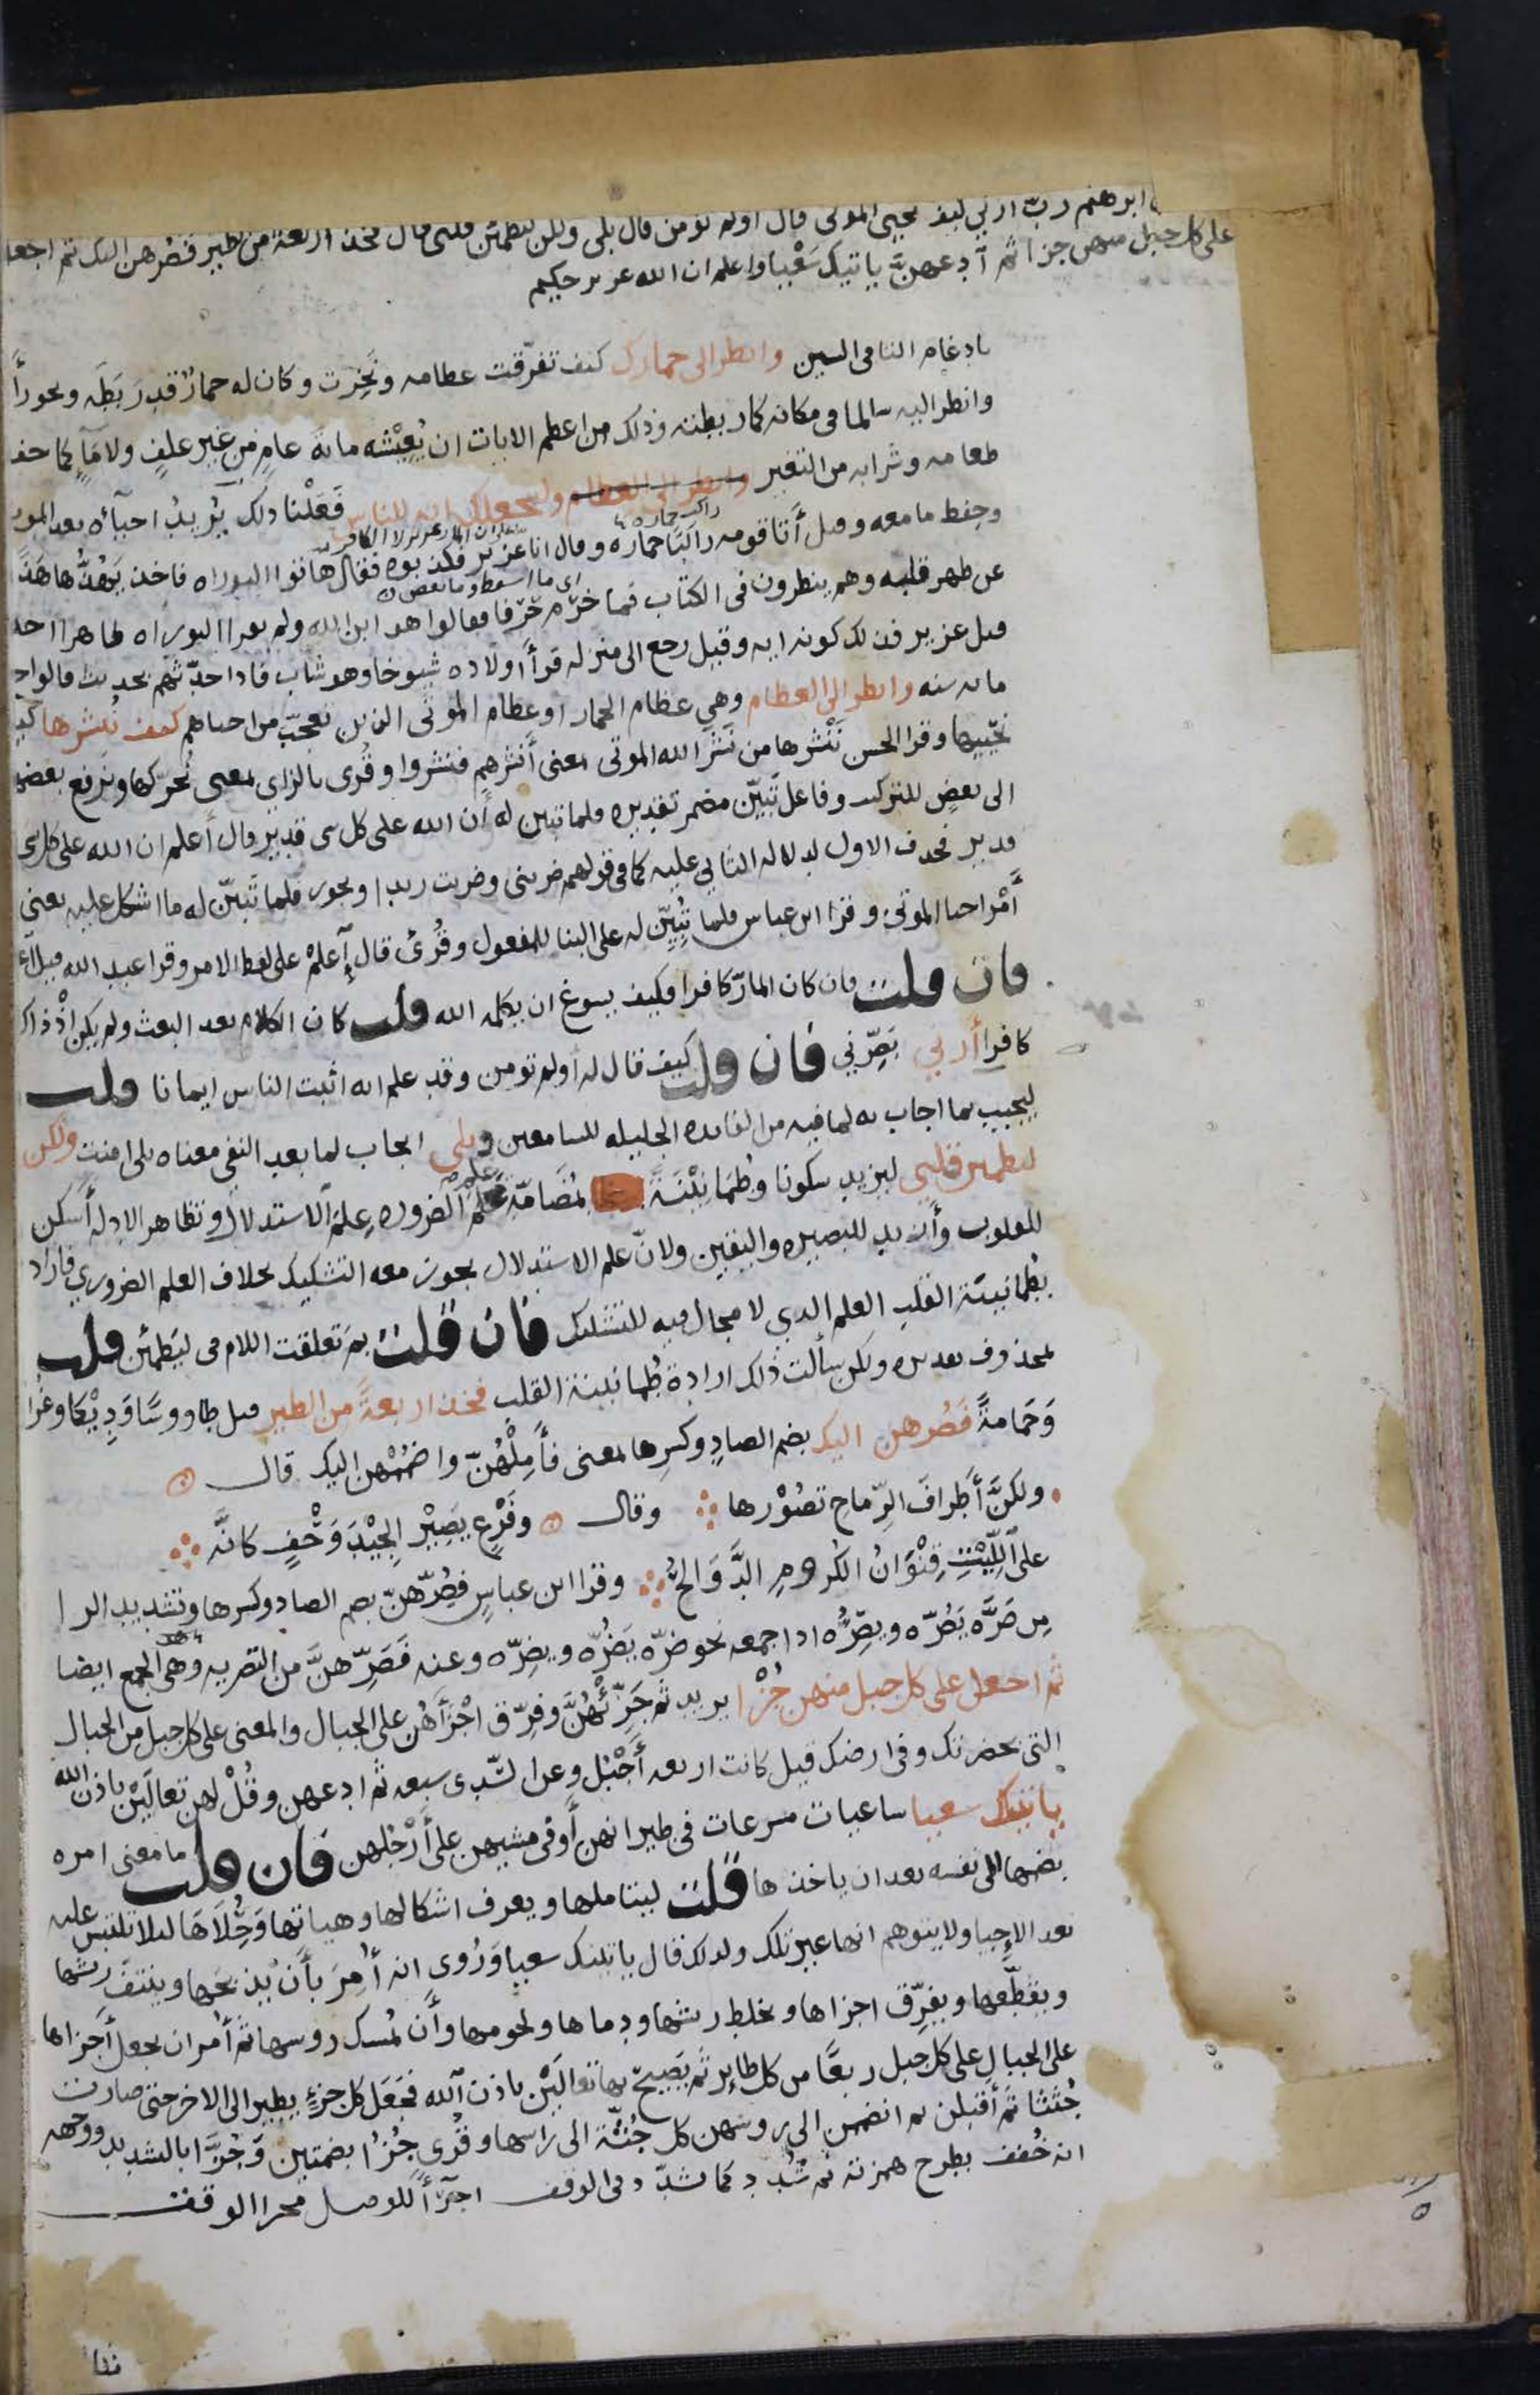 ابرهيم رب ارني كيف تحيي الموتى قال اولم تومن قال بلى ولكن ليطمئن قلبي قال فخذ اربعة من الطير فصرهن اليك ثم اجعل
على كل جبل منهن جزا ثم ادعهنّ ياتينك سَعْيا واعلم ان الله عزيز حكيم
بادغام التا في السين وانظر الى حمارك كيف تفرّقت عظامه ونَخِرت وكان له حمارٌ قد رَبَطَه ويجوز أ
وانظر اليه سالما في مكانه كما ربطته وذلك من اعظم الايات ان يُعِيْشَه مائة عامٍ من غير علفٍ ولا مَآءٍ كما حفظ
طعامه وشرابه من التغير ولنجعلك اية للناس فَعَلْنا ذلك يُريدُ احيآءه بعد الموت
وحِفظ ما معه وقيل أتا قومه راكبًا حماره وقال انا عزير فكذبوه فقال هاتوا التوراه فاخذ يَهُذُّها هَذًّا
عن ظهر قلبه وهم ينظرون في الكتاب فما خرّم حَرْفا فقالوا هو ابن الله ولم يقرا التوراه ظاهرا احد
قبل عزير فذلك كونه اية وقيل رجع الى منزله فرأ أولاده شيوخا وهو شاب فاذا حدّثهم بحديث قالوا حديث
مائه سنه وانظر الى العظام وهي عظام الحمار او عظام الموتى الذين تعجّب من احياهم كيف نُنشرها كيف
نحييها وقرا الحسن نَنْشرها من نَشَر الله الموتى بمعنى أنشرهم فنشروا وقُرى بالزاى بمعنى نُحرّكها ونرفع بعضها
الى بعضٍ للتركيب وفاعل تبيّن مضمر تقديره فلما تبين له أن الله على كل شي قديرٌ قال أعلم ان الله على كل شي
قدير فحذف الاول لدلالة الثاني عليه كما في قولهم ضربنى وضربت زيدا ويجوز فلما تَبَيّن له ما اشكل عليه يعني
أَمْر احيا الموتى وقرا ابن عباس فلما تُبُيّن له على البنا للمفعول وقُرئ قال أعلمْ على لفظ الامر وقرا عبد الله قيل اعلم
فان قلت فان كان المارّ كافرا فكيف يسوغ ان يكلمه الله قلت كان الكلام بعد البعث ولم يكن اذْ ذاك
كافرا أرني بَصِّرْني فان قلت كيف قال له اولم تومن وقد علم انه اثبت الناس ايمانا قلت
ليجيب بما اجاب به لما فيه من الفائدة الجليله للسامعين وبلى ايجاب لما بعد النفى معناه بلى امنت ولكن
ليطمئن قلبي ليزيد سكونا وطُمَانِيْنَةً بمُضَامّة علم الضروره عِلمَ الاستدلال وتظاهر الادلة أَسكن
للقلوب وأزيد للبصيره واليقين ولانّ علم الاستدلال يجوز معه التشكيك بخلاف العلم الضروري فاراد
بطمانينة القلب العلم الذي لا مجال فيه للتشكيك فان قلت بِمَ تعلقت اللام في ليَطمئن قلت
بمحذوف تقديره ولكن سألت ذلك ارادةَ طُمانينة القلب فخذ اربعةً من الطير قيل طاووسًا وَدِيْكا وغُرا
وَحَمامةً فَصُرهن اليك بضم الصادِ وكسرِها بمعنى فأَمِلْهُنّ واضْمُمْهن اليك قال
ولكنَّ أَطرافَ الرِّماحِ تصُوْرها وقال وفَرْعٍ يَصِيْر الجِيْدَ وَحْفٍ كانَّه
على اللِّيْتِ قِنْوَانُ الكُرومِ الدَّوَالحُ وقرا ابن عباسٍ فصُرّهنّ بضم الصاد وكسرها وتشديد الرا
مِن صَرَّه يَصُرّه ويصِرُّه اذا جمعه نحو ضرّه يَضُرّه ويضِرّه وعنه فَصَرِّهنَّ من التصريه وهي الجمع ايضا
ثم اجعل على كل جبل منهن جُزْا يريد ثم جَزِّئْهُنَّ وفرِّق اجْزَأهُن على الجبال والمعنى على كل جبل من الجبال
التى بحضرتك وفى ارضك قيل كانت اربعه أَجْبُل وعن السّدى سبعه ثم ادعهن وقُلْ لهن تعالَيْن باذن الله
ياتينك سعيا ساعيات مسرعات في طيرانهن أو فى مشيهن على أَرْجُلهن فان قلت ما معنى امره
بضمها الى نفسه بعد ان ياخذها قلت ليتاملها ويعرف اشكالها وهياتها وَحُلَاهَا لئلا تلتبس عليه
بعد الإحيا ولا يتوهم انها غير تلك ولذلك قال ياتينك سعيا وَرُوى انه أُمِرَ بأن يذبحها وينتف ريشها
ويقطّعها ويفرّق اجزاها ويخلط ريشها ودماها ولحومها وأَن يُمسك روسها ثم أُمر ان يجعل أجزاها
على الجبالِ على كل جبل ربعًا من كل طاير ثم يَصيحَ بها تعالَيْن باذن الله فجَعَل كل جزءٍ يطير الى الاخر حتى صارت
جُثَثا ثم أقبلن ثم انضممن الى روسهن كل جُثّة الى راسها وقُرى جُزُا بضمتين وَجُزًّا بالتشديد ووجهه
انه خُفف بطرح همزته ثم شُدد كما شدّد فى الوقف اجرآءً للوصل مجرا الوقف